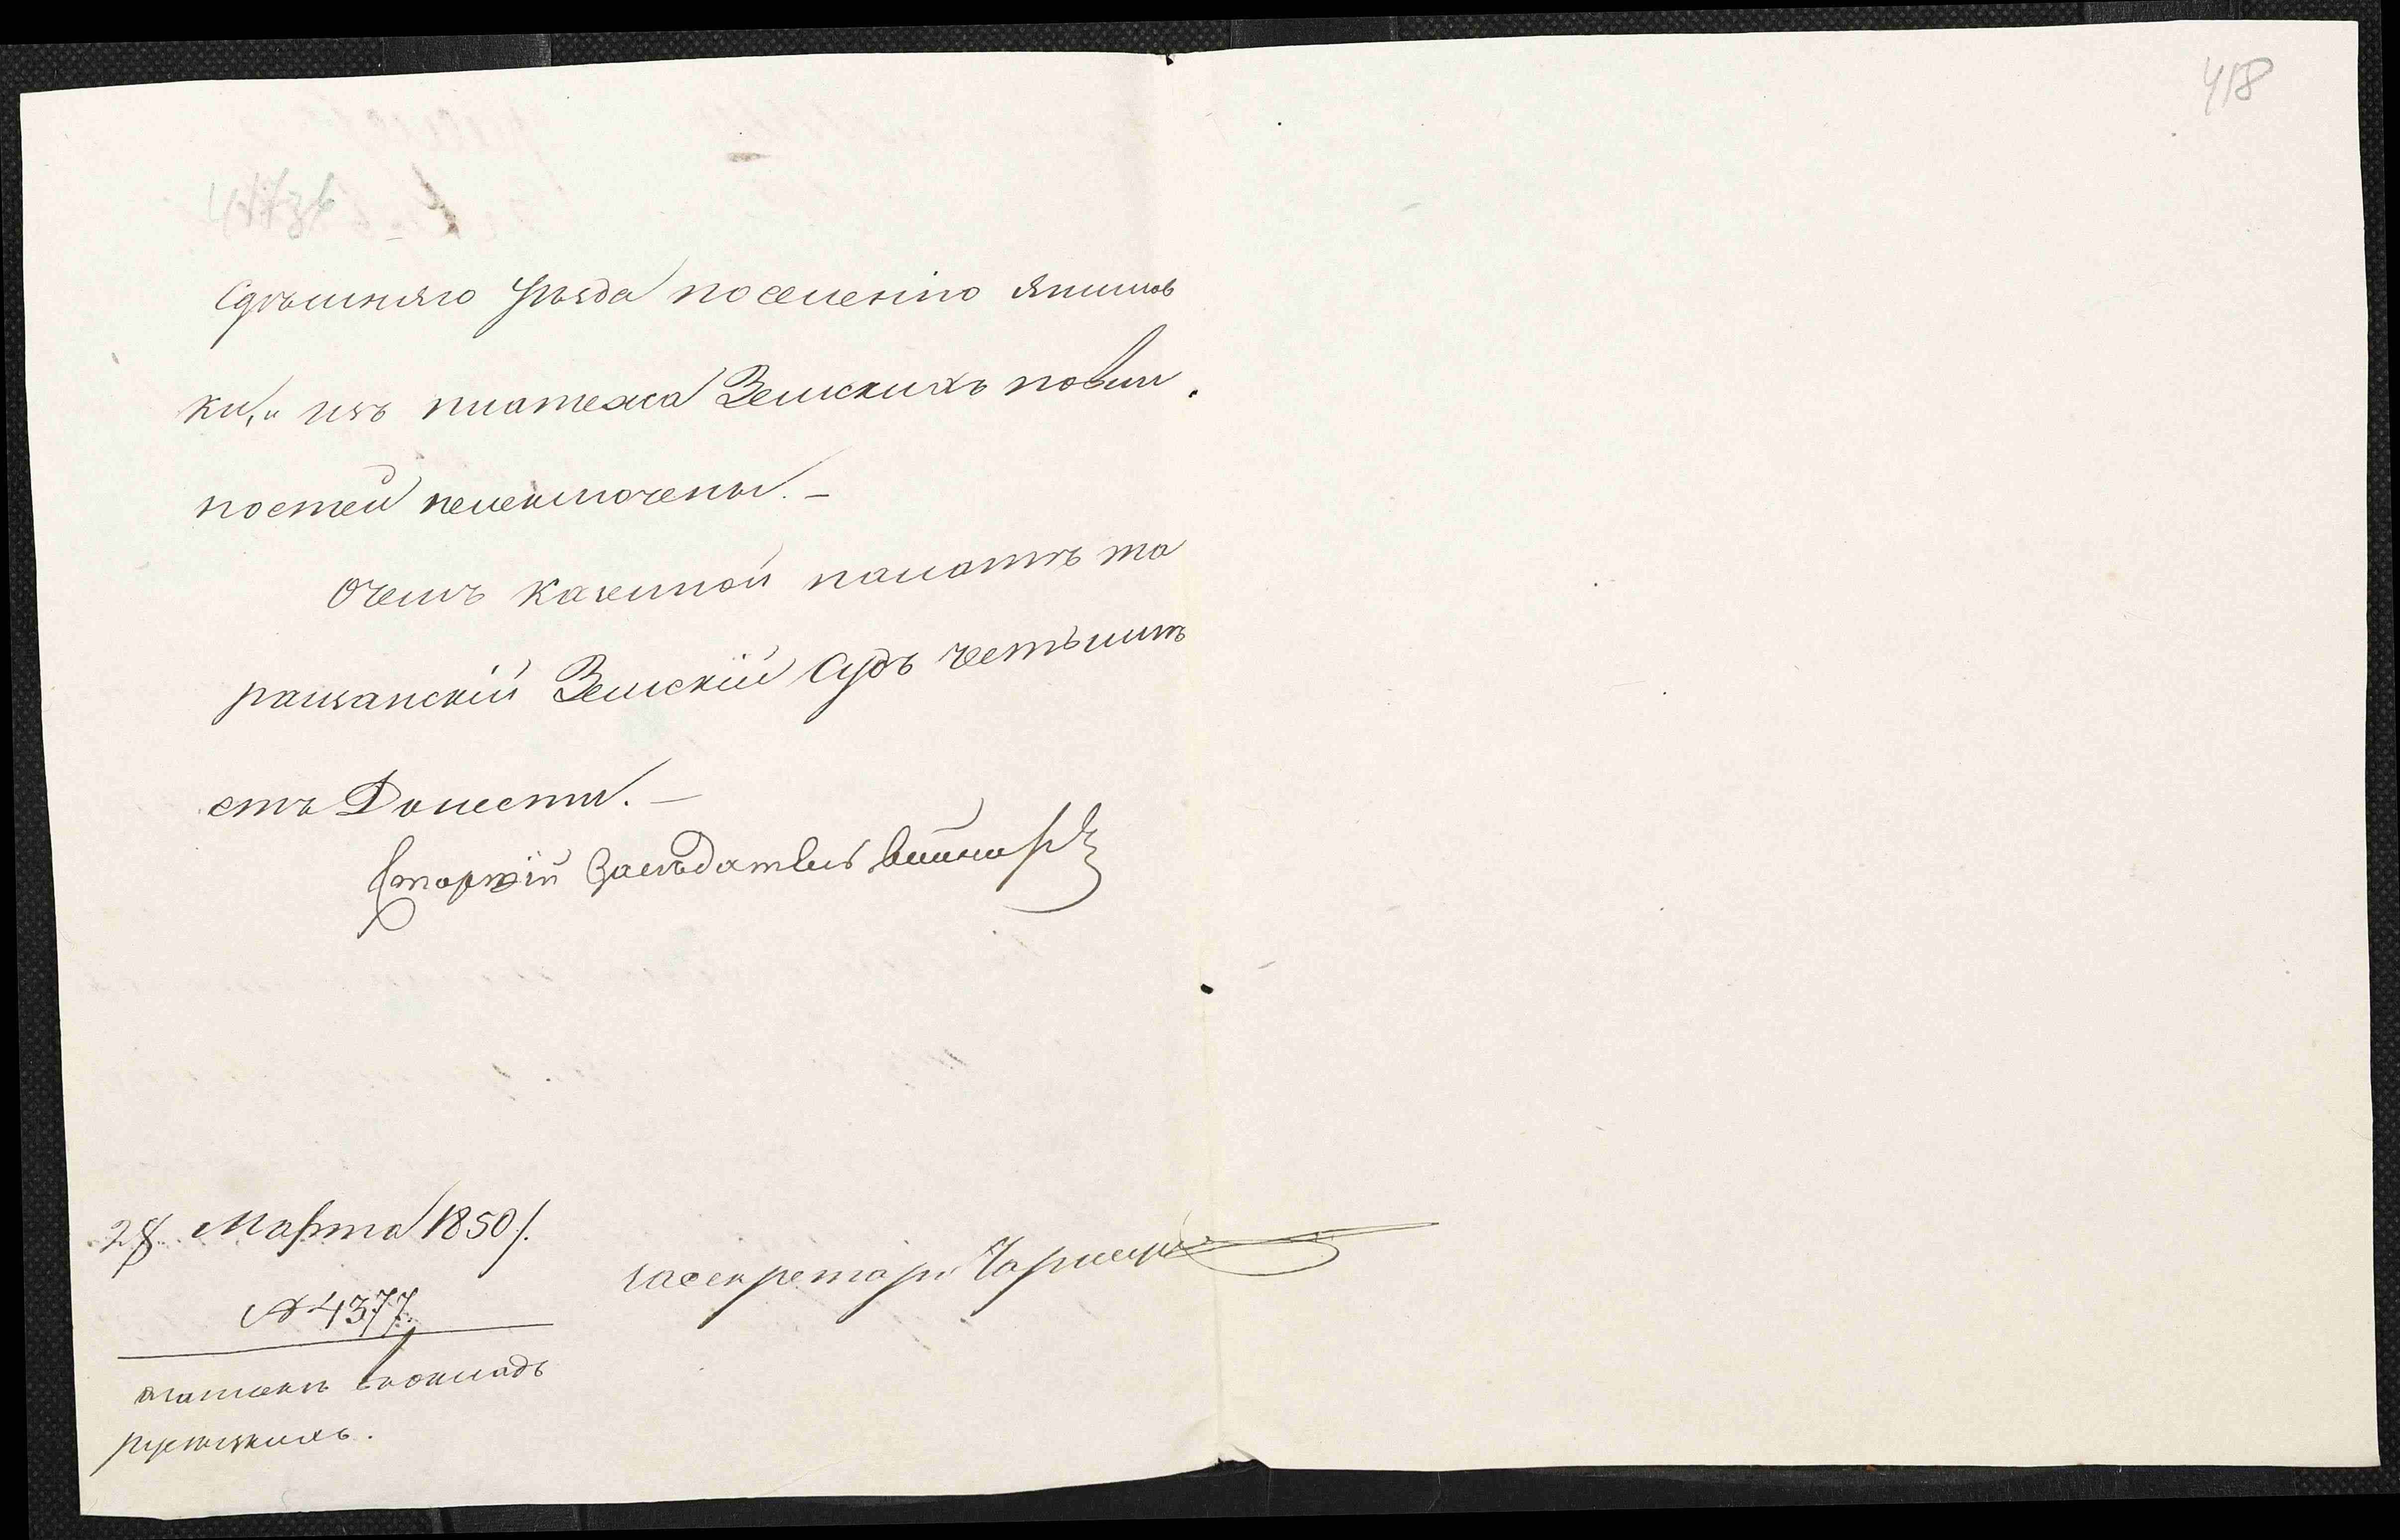 418
417 зв
Сдѣшняго уѣзда поселенію Япимов
ки, и изъ платежа Земскихъ повин
ностей неисключены. —
О чемъ казенной палатѣ та
ращанскій Земскій Судъ честь имѣ
етъ Донести. —
Старшій Засѣдатель
28 Марта 1850 г.
№ 4377.
За секретаря